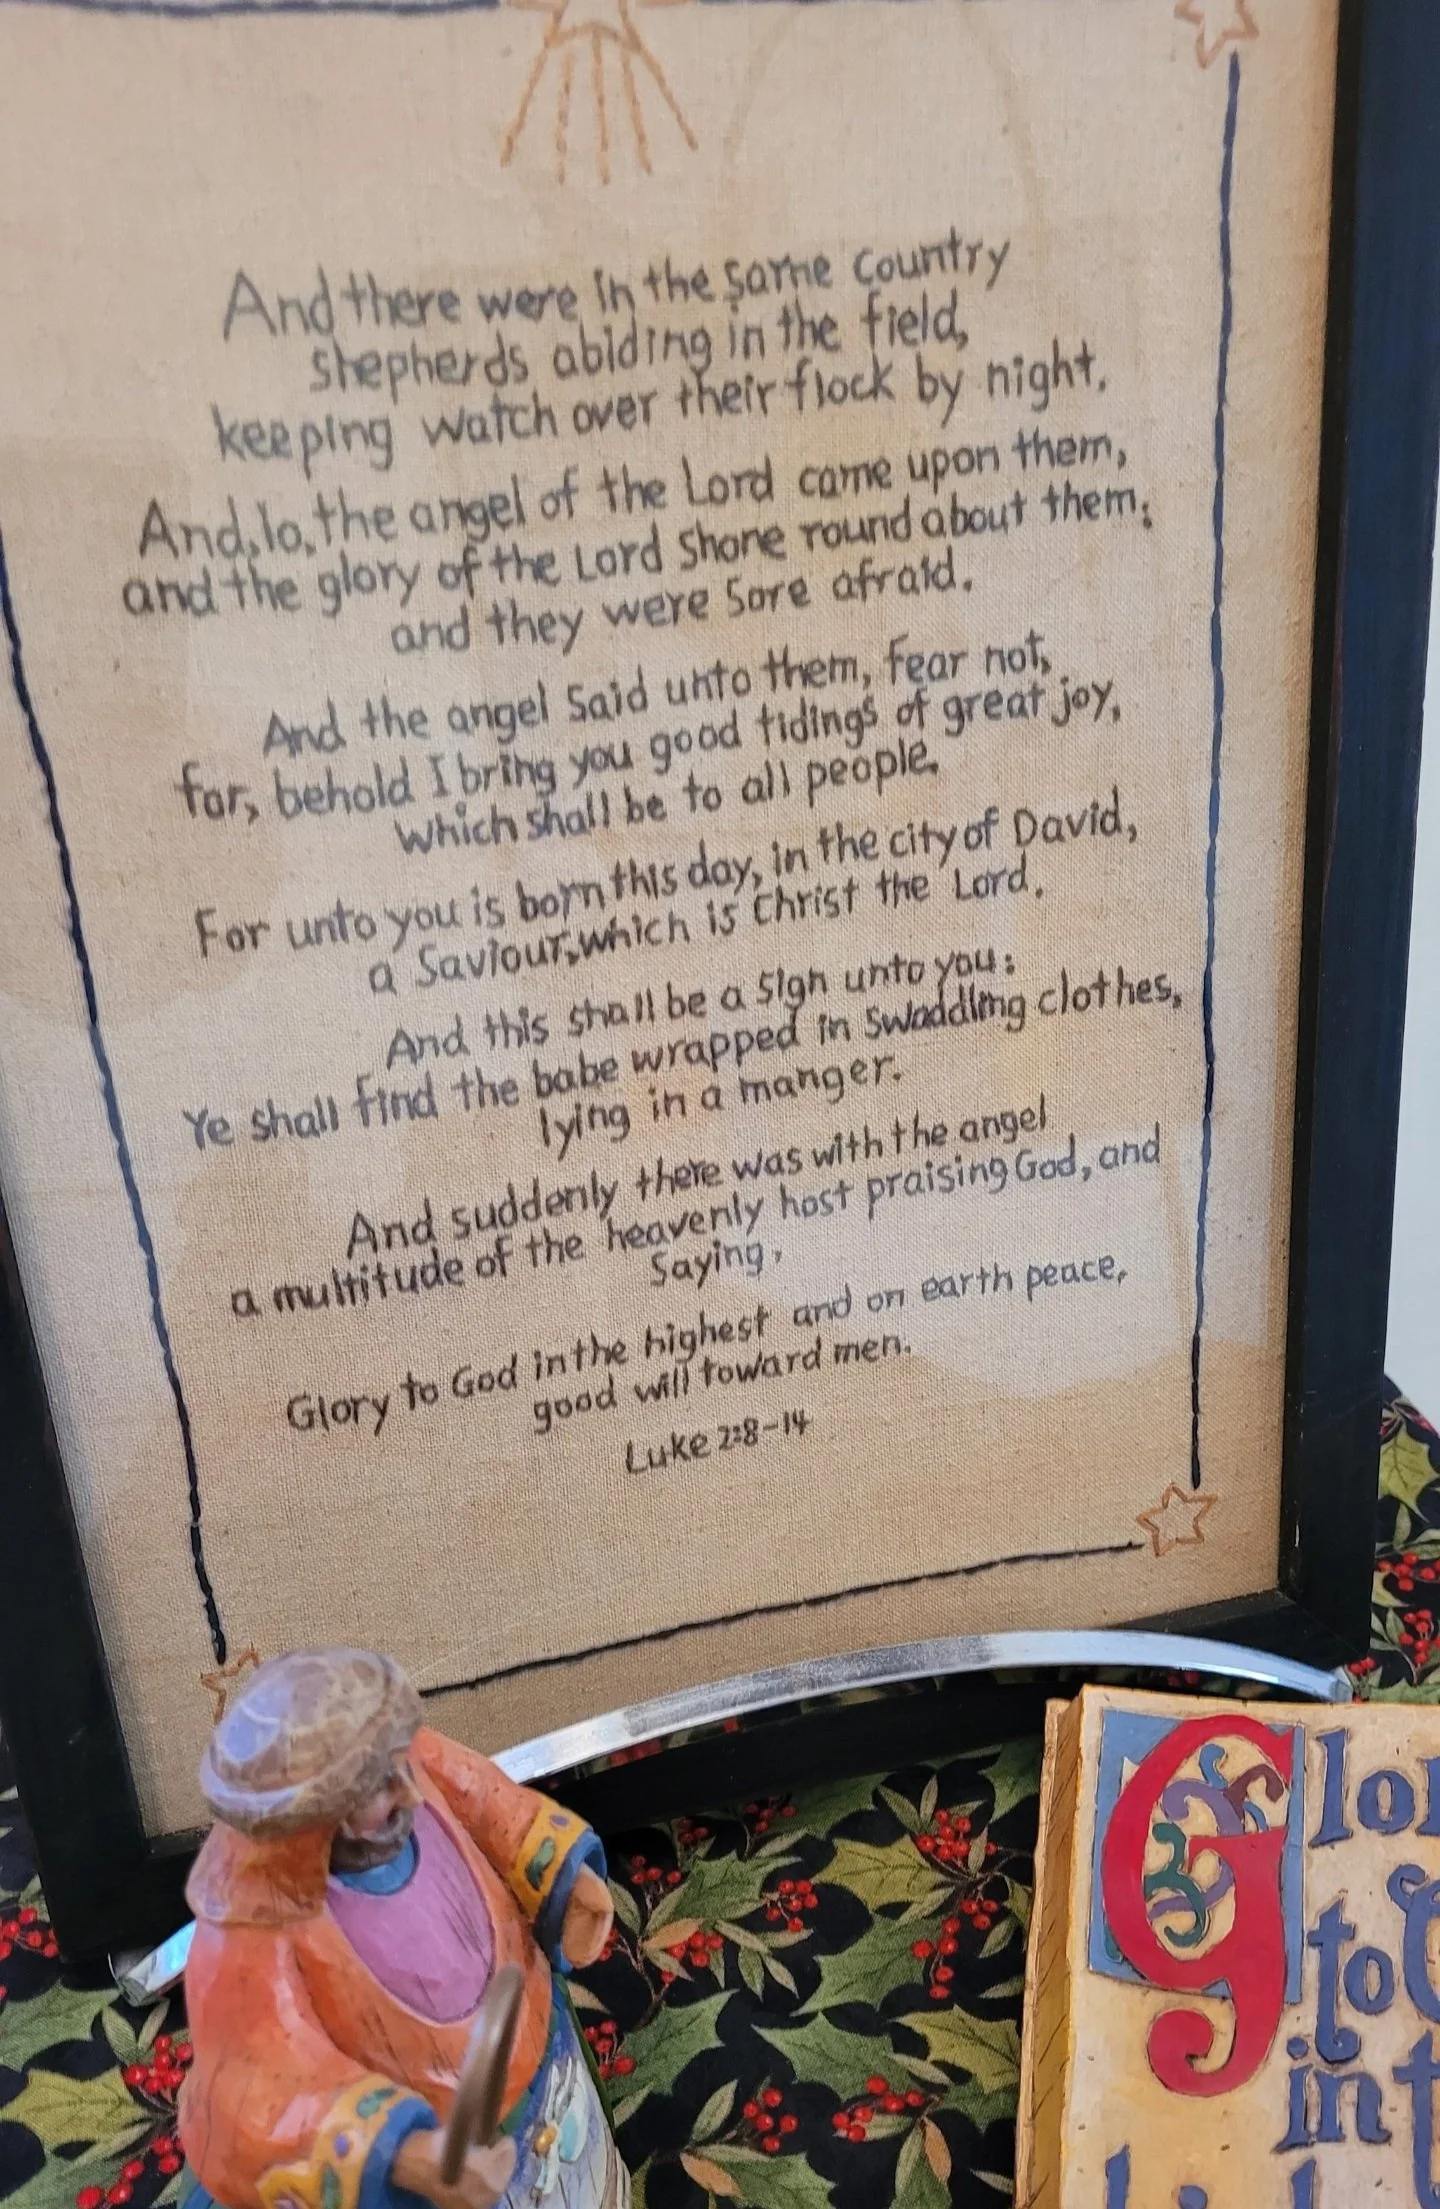 And there were in the same country
shepherds abiding in the field,
keeping watch over their flock by night.
And, lo, the angel of the Lord came upon them,
and the glory of the Lord shone round about them;
and they were sore afraid.
And the angel said unto them, fear not,
for, behold I bring you good tidings of great joy,
which shall be to all people.
For unto you is born this day, in the city of David,
a Saviour, which is Christ the Lord.
And this shall be a sign unto you:
Ye shall find the babe wrapped in swaddling clothes,
lying in a manger.
And suddenly there was with the angel
a multitude of the heavenly host praising God, and
Saying,
Glory to God in the highest and on earth peace,
good will toward men.
Luke 2:8-14
Glo
to
in